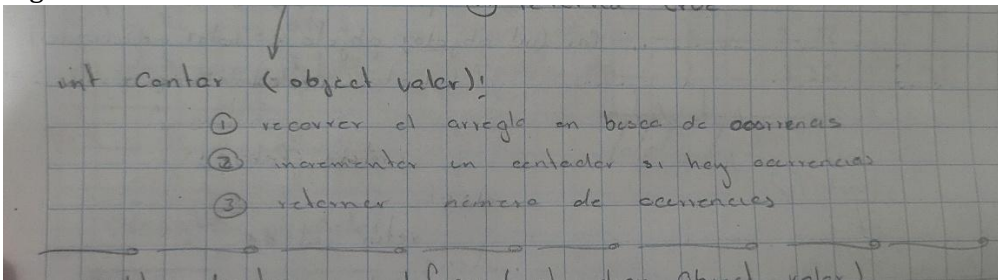 int Contar (object valor):
① recorrer el arreglo en busca de ocorrencias
② incrementar un contador si hay ocurrencias
③ retornar número de ocurrencias